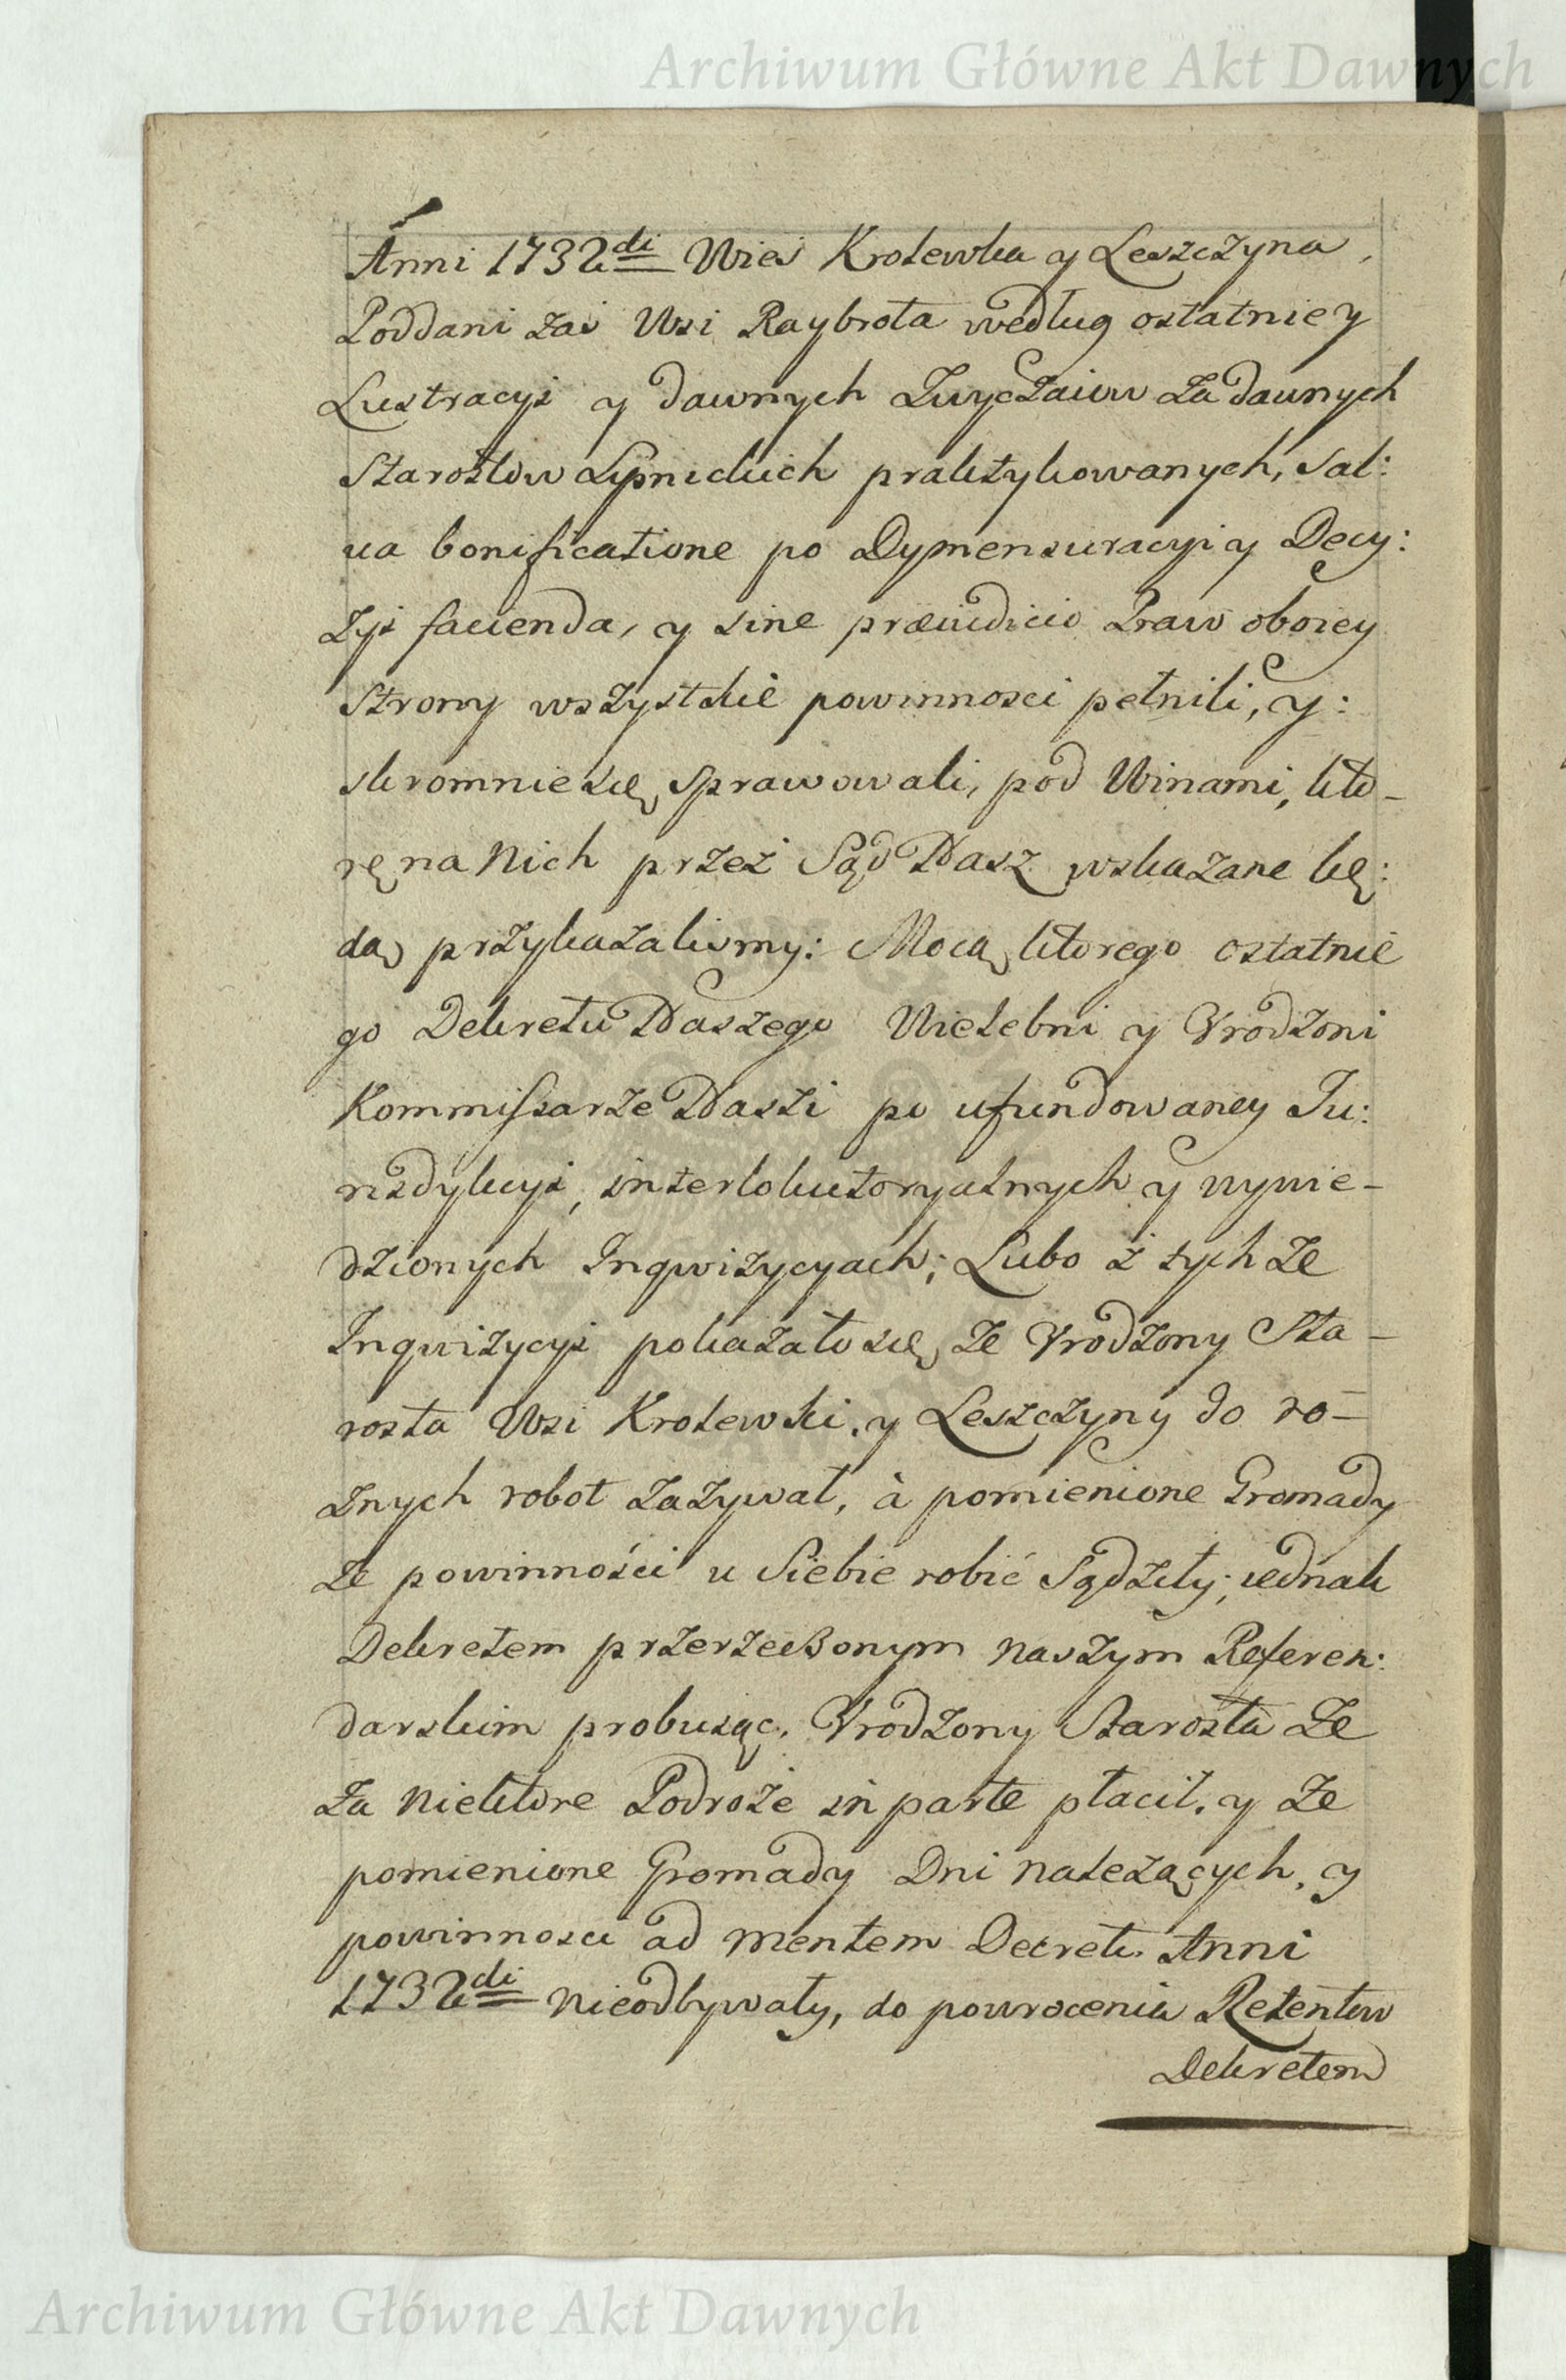 Archiwum Główne Akt Dawnych
Anni 1732di Wieś Krolewka y Leszczyna,
Poddani zaś Wsi Raybrota według ostatniey
Lustracyi y dawnych Zwyczaiow za dawnych
Starostow Lipnickich praktykowanych, Sal:
va bonificatione po Dymensuracyi y Decy:
zyi facienda, y sine præiudicio Praw oboiey
Strony wszystkie powinnosci pełnili, y:
skromnie się sprawowali, pod Winami, kto-
rę na Nich przez Sąd Nasz wskazane bę:
dą przykazalismy: Mocą ktorego ostatnie
go Dekretu Naszego Wielebni y Vrodzoni
Kommissarze Naszi po ufundowaney Ju:
risdykcyi, interlokutoryalnych y wywie-
dzionych Inqwizycyach; Lubo z tych ze
Inqwizycyi pokazało się, ze Vrodzony Sta-
rosta Wsi Krolewki, y Leszczyny do ro-
znych robot zazywał, à pomienione Gromady
ze powinności u Siebie robić Sądziły; iednak
Dekretem przerzeczonym naszym Referen:
darskim probuiąc, Vrodzony Starosta ze
za niektore Podroże in parte płacił, y ze
pomienione Gromady Dni należących, y
powinnosci ad mentem Decreti Anni
1732di nieodbywały, do powrocenia Retentow
Dekretem
Archiwum Główne Akt Dawnych